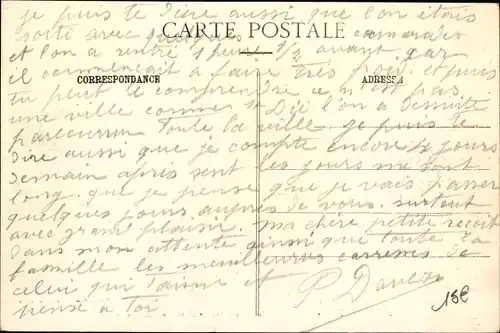 je puis te dire aussi que l'on étais
CARTE POSTALE
sortie avec quelques camarades
et l'on a rentré 1 heure 1/2 avant car
il commencait à faire très froid. et puis
CORRESPONDANCE
ADRESSE
tu peut le comprendre ce n'est pas
une ville comme l'on a de suite
parcourrur toute la ville je puis te
dire aussi que je compte encore 4 jours
demain après sent les jours me sont
long. que je pense que je vais passer
quelques jours auprès de vous. surtout
avec grand plaisir. ma chère petite reçoit
dans mon attente ainsi que toute la
famille les meuilleurres carresses de
celui qui t'aime et
pense à toi
P. Davera
15E